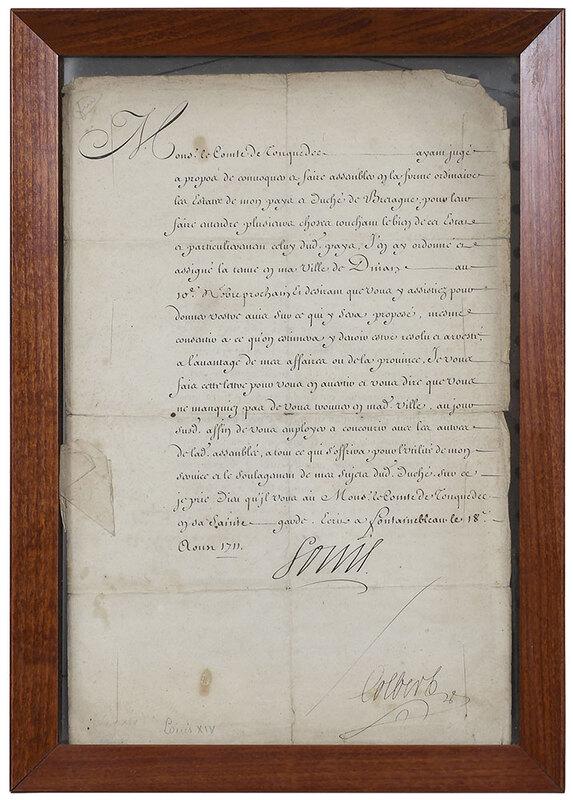 Mons.r le Comte de Tonquedec ayant jugé
a propos de convoquer et faire assembler en la forme ordinaire
les Estats de mon pays et Duché de Bretagne, pour leur
faire entendre plusieurs choses touchant le bien de cet Estat
et particulierement celuy dud. pays, J'en ay ordonné et
assigné la tenue en ma Ville de Dinan au
10.e Nobre prochain Et desirant que vous y assistiez pour
donner vostre avis sur ce qui y sera proposé, mesme
consentir a ce qu'on estimera y devoir estre resolu et arresté,
a l'avantage de mes affaires ou de la province, Je vous
fais cette lettre pour vous en avertir et vous dire que vous
ne manquiez pas de vous trouver en mad. Ville, au jour
susd. affin de vous employer a concourir avec les autres
de lad. assemblée, a tout ce qui s'offrira pour l'utilité de mon
service et le soulagement de mes sujets dud. Duché. Sur ce
je prie Dieu qu'il vous ait Mons.r le Comte de Tonquedec
en sa sainte garde. Ecrit a Fontainebleau le 18.e
Aoust 1711.
Louis
Colbert
Louis XIV